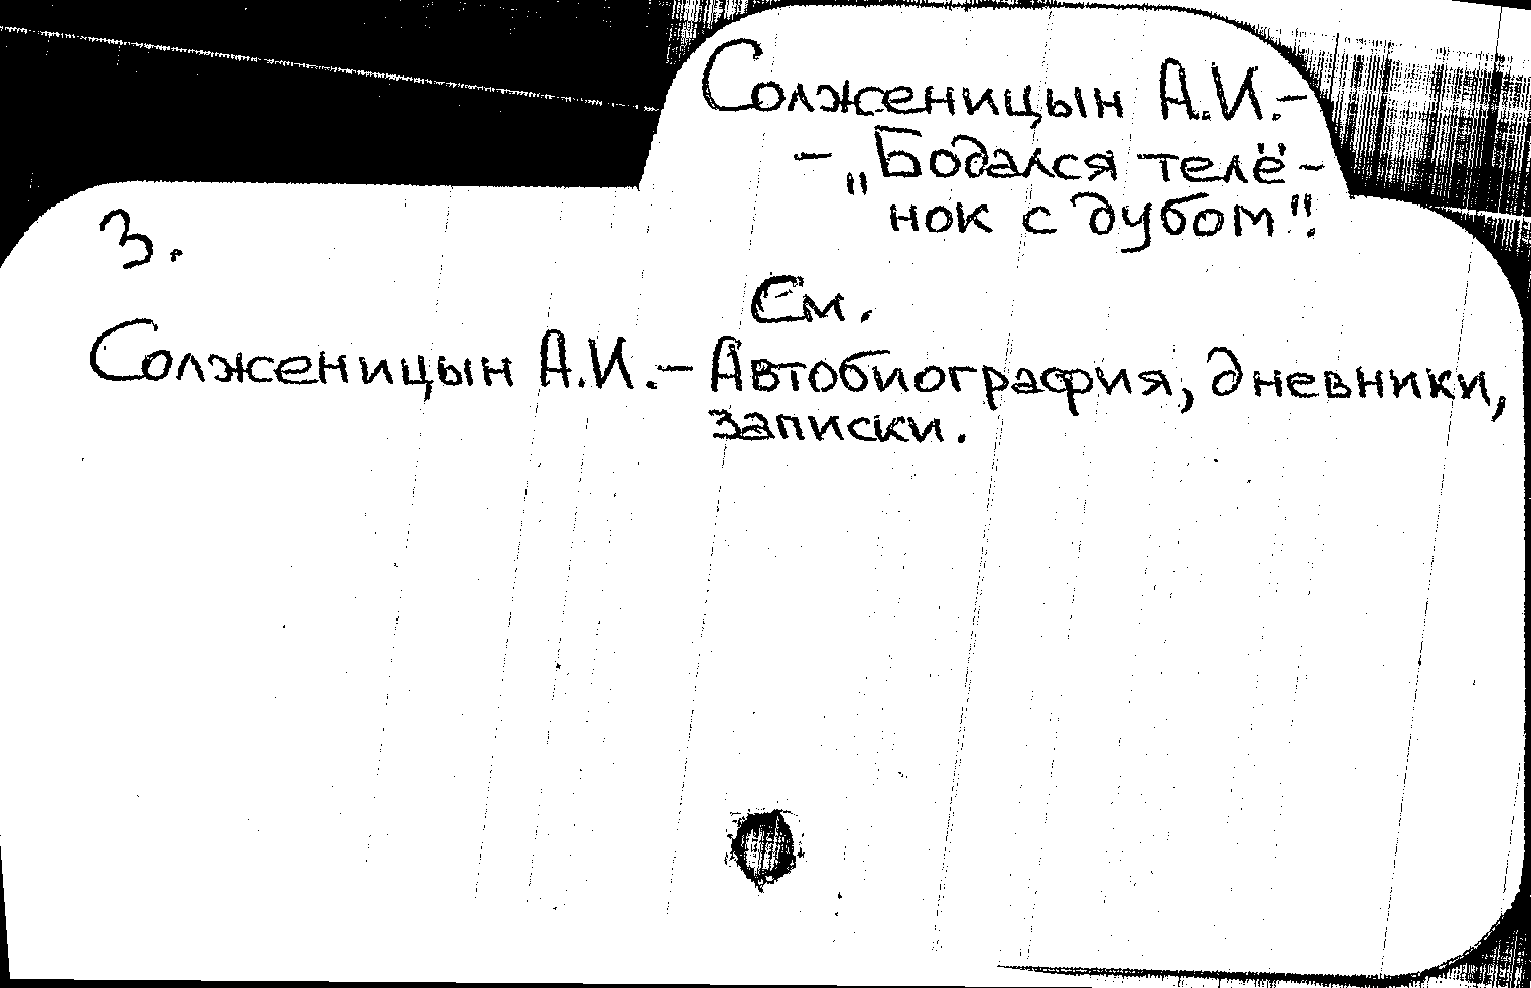 Солженицын А.И.-
- „Бодался телё-
нок с дубом".
3.
См.
Солженицын А.И.- Автобиография, дневники,
записки.